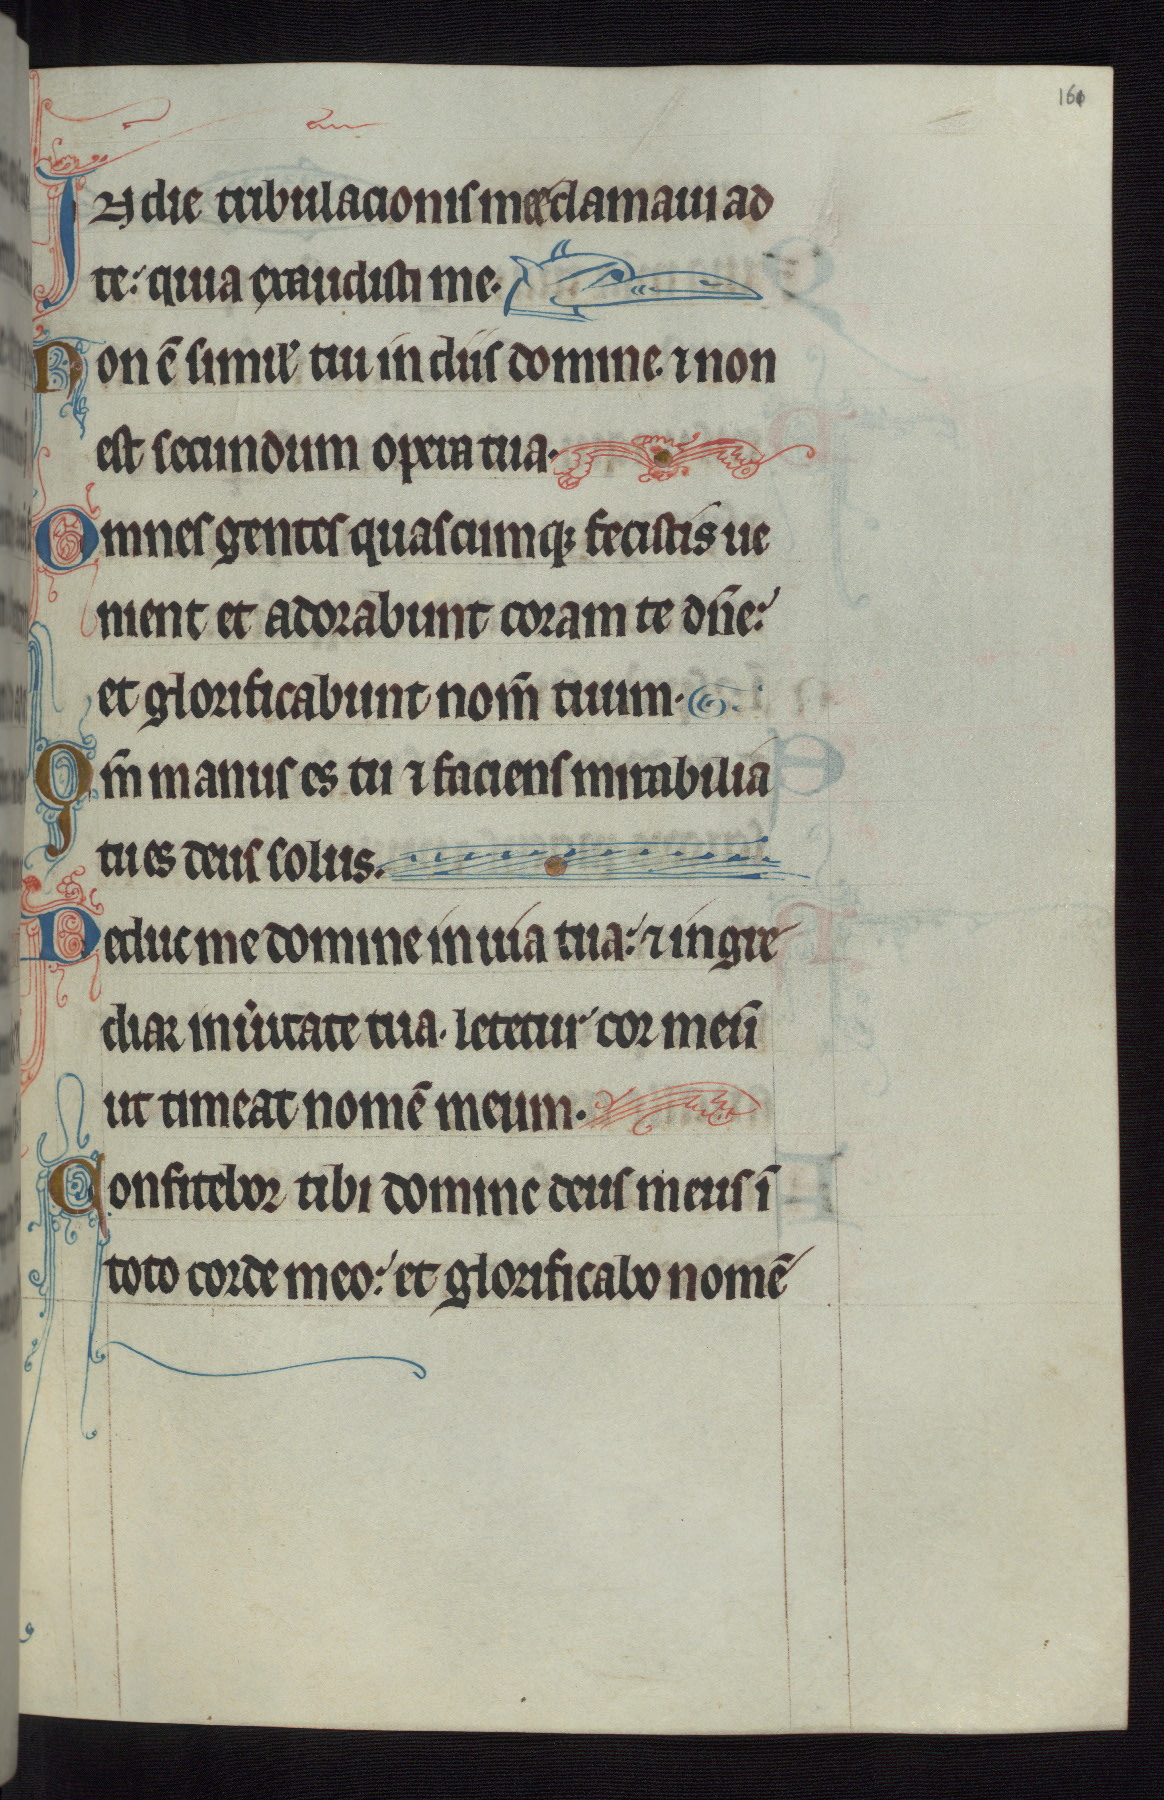 160
IN die tribulacionis mee clamaui ad
te: quia exaudisti me.
Non ē simił tui in diis domine. ⁊ non
est secundum opera tua.
Omnes gentes quascumqꝫ fecistis ue
nient et adorabunt coram te dn̄e:
et glorificabunt nom̄ tuum.
Qm̄ manus es tu ⁊ faciens mirabilia
tu es deus solus.
Deduc me domine in uia tua: ⁊ ingre
diar in uͥtate tua. letetur cor meū
ut timeat nomē meum.
Confitebor tibi domine deus meus ī
toto corde meo: et glorificabo nomē